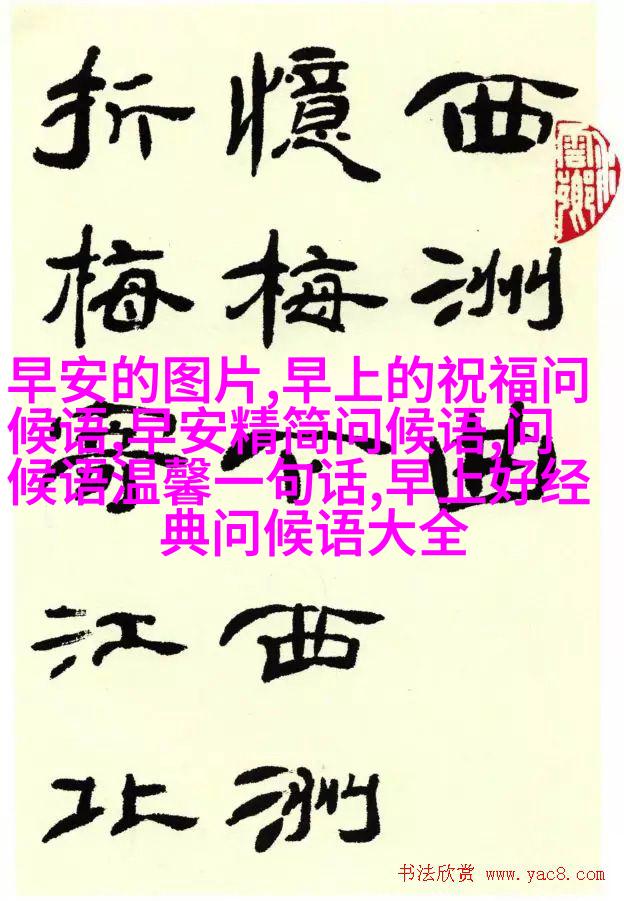 西洲曲
憶梅下西洲
折梅寄江北
早安的图片,早上的祝福问
候语,早安精简问候语,问
候语温馨一句话,早上好经
典问候语大全
书法欣赏 www.yac8.com